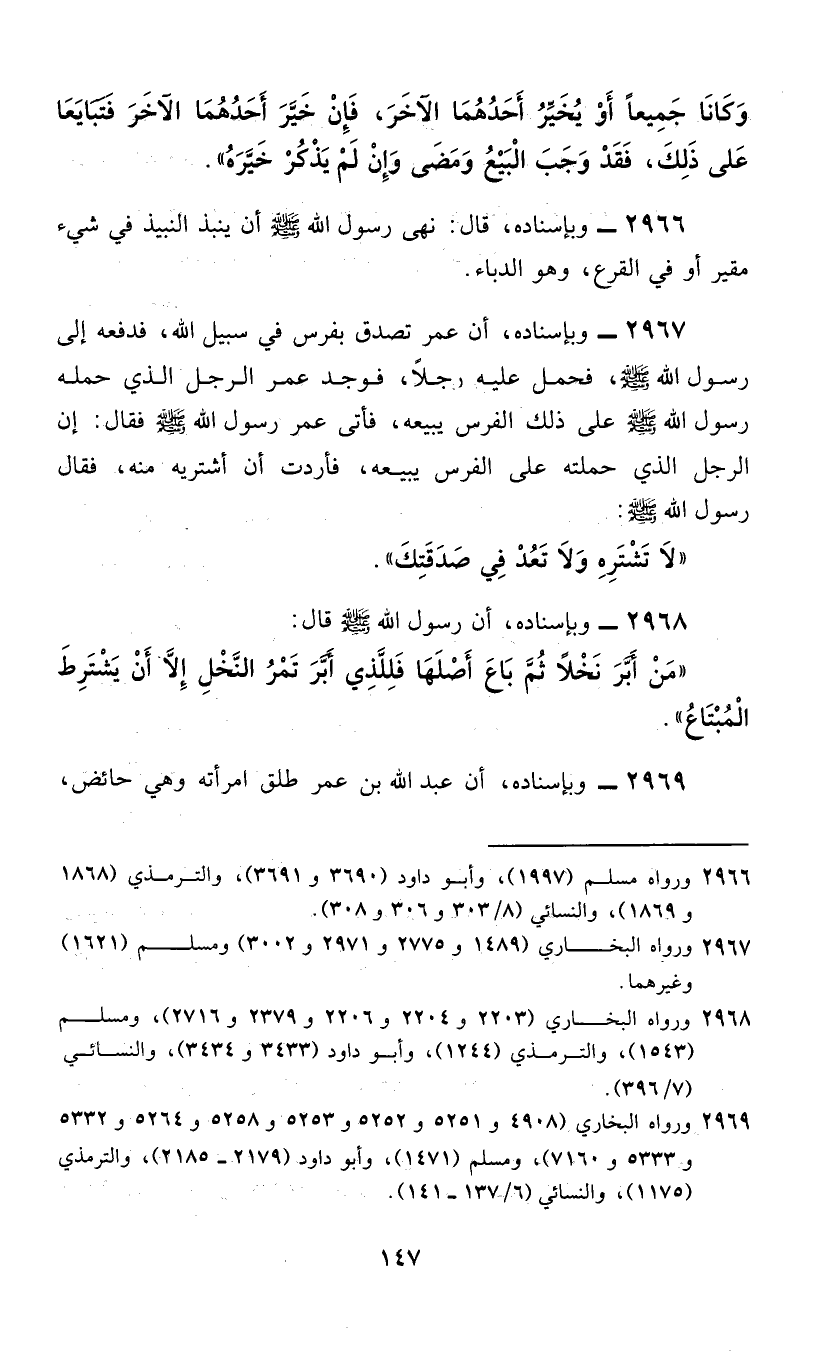 وَكَانَا جَمِيعاً أَوْ يُخَيِّرُ أَحَدُهُمَا الآخَرَ، فَإِنْ خَيَّرَ أَحَدُهُمَا الآخَرَ فَتَبَايَعَا
عَلى ذَلِكَ، فَقَدْ وَجَبَ الْبَيْعُ وَمَضَى وَإِنْ لَمْ يَذْكُرْ خَيَّرَهُ».
٢٩٦٦ ــ وبإسناده، قال: نهى رسول الله ﷺ أن ينبذ النبيذ في شيء
مقير أو في القرع، وهو الدباء.
٢٩٦٧ ــ وبإسناده، أن عمر تصدق بفرس في سبيل الله، فدفعه إلى
رسول الله ﷺ، فحمل عليه رجلاً، فوجد عمر الرجل الذي حمله
رسول الله ﷺ على ذلك الفرس يبيعه، فأتى عمر رسول الله ﷺ فقال: إن
الرجل الذي حملته على الفرس يبيعه، فأردت أن أشتريه منه، فقال
رسول الله ﷺ:
«لَا تَشْتَرِهِ وَلَا تَعُدْ فِي صَدَقَتِكَ».
٢٩٦٨ ــ وبإسناده، أن رسول الله ﷺ قال:
«مَنْ أَبَّرَ نَخْلاً ثُمَّ بَاعَ أَصْلَهَا فَلِلَّذِي أَبَّرَ تَمْرُ النَّخْلِ إِلاَّ أَنْ يَشْتَرِطَ
الْمُبْتَاعُ».
٢٩٦٩ ــ وبإسناده، أن عبد الله بن عمر طلق امرأته وهي حائض،
٢٩٦٦ ورواه مسلم (١٩٩٧)، وأبو داود (٣٦٩٠ و ٣٦٩١)، والترمذي (١٨٦٨
و ١٨٦٩)، والنسائي (٣٠٣/٨ و ٣٠٦ و ٣٠٨).
٢٩٦٧ ورواه البخاري (١٤٨٩ و ٢٧٧٥ و ٢٩٧١ و ٣٠٠٢) ومسلم (١٦٢١)
وغيرهما.
٢٩٦٨ ورواه البخاري (٢٢٠٣ و ٢٢٠٤ و ٢٢٠٦ و ٢٣٧٩ و ٢٧١٦)، ومسلم
(١٥٤٣)، والترمذي (١٢٤٤)، وأبو داود (٣٤٣٣ و ٣٤٣٤)، والنسائي
(٣٩٦/٧).
٢٩٦٩ ورواه البخاري (٤٩٠٨ و ٥٢٥١ و ٥٢٥٢ و ٥٢٥٣ و ٥٢٥٨ و ٥٢٦٤ و ٥٣٣٢
و ٥٣٣٣ و ٧١٦٠)، ومسلم (١٤٧١)، وأبو داود (٢١٧٩ ـ ٢١٨٥)، والترمذي
(١١٧٥)، والنسائي (١٣٧/٦ ـ ١٤١).
١٤٧